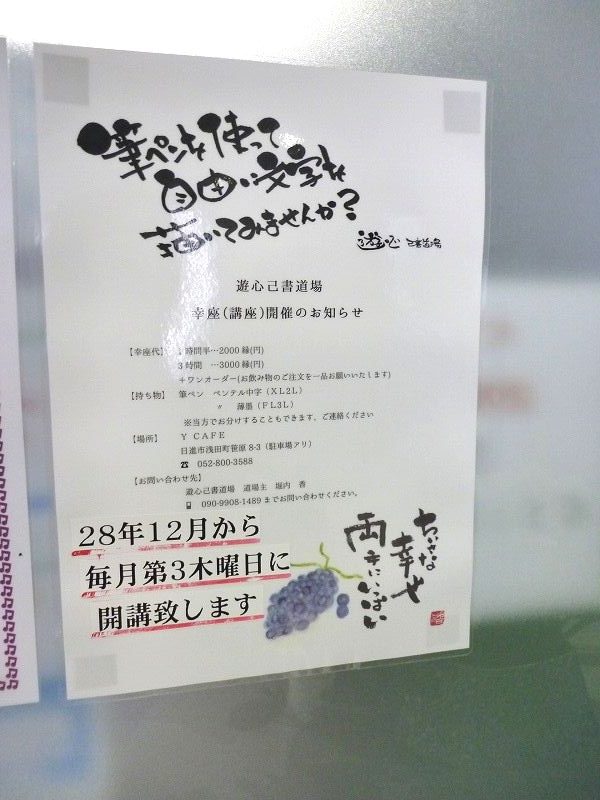 筆ペンを使って
自由な文字を
描いてみませんか?
遊心 己書道場
遊心己書道場
幸座(講座)開催のお知らせ
【幸座代】 1時間半…2000縁(円)
3時間 …3000縁(円)
+ワンオーダー(お飲み物のご注文を一品お願いいたします)
【持ち物】 筆ペン ペンテル中字(XL2L)
〃 薄墨(FL3L)
※当方でお分けすることもできます、ご連絡ください
【場所】 Y CAFE
日進市浅田町笹原8-3(駐車場アリ)
☎ 052-800-3588
【お問い合わせ先】
遊心己書道場 道場主 堀内 香
090-9908-1489までお問い合わせください。
28年12月から
毎月第3木曜日に
開講致します
ちいさな
幸せ
両手にいっぱい